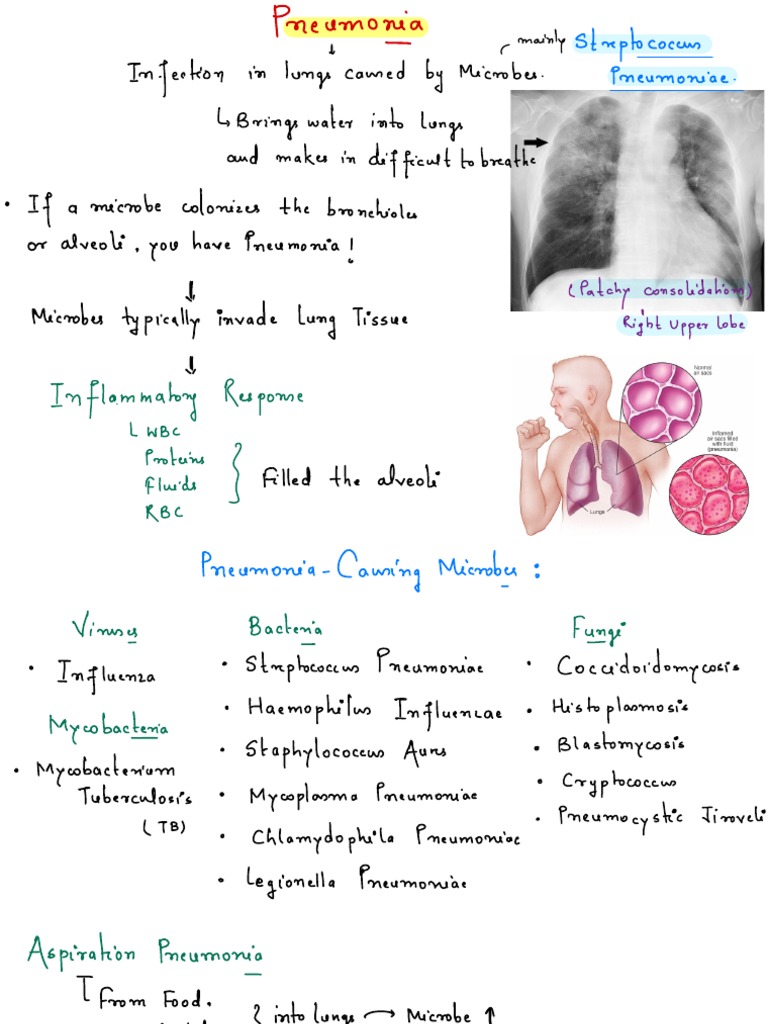 Pneumonia
mainly Streptococcus
Infection in lungs caused by Microbes.
Pneumoniae.
Brings water into lungs
and makes in difficult to breathe
• If a microbe colonizes the bronchioles
or alveoli, you have Pneumonia!
Microbes typically invade Lung Tissue
(Patchy consolidation)
Right Upper lobe
Inflammatory Response
WBC
Proteins
fluids
RBC
filled the alveoli
Normal
air sacs
Inflamed
air sacs filled
with fluid
(pneumonia)
Lungs
Pneumonia-Causing Microbes:
Viruses
• Influenza
Mycobacteria
• Mycobacterium
Tuberculosis
(TB)
Bacteria
• Streptococcus Pneumoniae
• Haemophilus Influenzae
• Staphylococcus Aures
• Mycoplasma Pneumoniae
• Chlamydophila Pneumoniae
• Legionella Pneumoniae
Fungi
• Coccidoidomycosis
• Histoplasmosis
• Blastomycosis
• Cryptococcus
• Pneumocystic Jiroveli
Aspiration Pneumonia
From Food.
into lungs → Microbe ↑